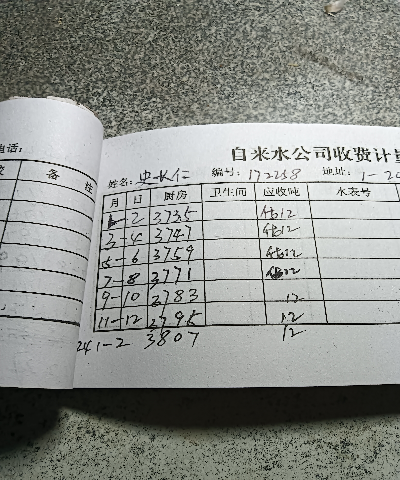 电话:
自来水公司收费计量
姓名: 史长仁 编号: 172258 地址: 1-20
备 注
月 日 厨房 卫生间 应收吨 水表号
1-2 3735 估12
3-4 3747 估12
5-6 3759 估12
7-8 3771 估12
9-10 3783 12
11-12 3795 12
241-2 3807 12